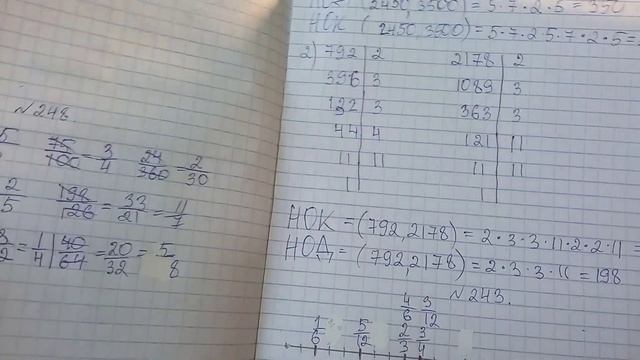 №248
75/100 = 3/4 24/360 = 2/30
2/5 198/126 = 33/21 = 11/7
= 1/4 | 40/64 = 20/32 = 5/8
(2450,3500) = 5·7·2·5 = 350
НОК (2450,3500) = 5·7·2·5·7·2·5 =
2) 792 | 2 2178 | 2
396 | 3 1089 | 3
132 | 3 363 | 3
44 | 4 121 | 11
11 | 11 11 | 11
1 | 1 |
НОК = (792,2178) = 2·3·3·11·2·2·11 =
НОД = (792,2178) = 2·3·3·11 = 198
№243.
4/6 3/12
1/6 5/12 2/3 3/4